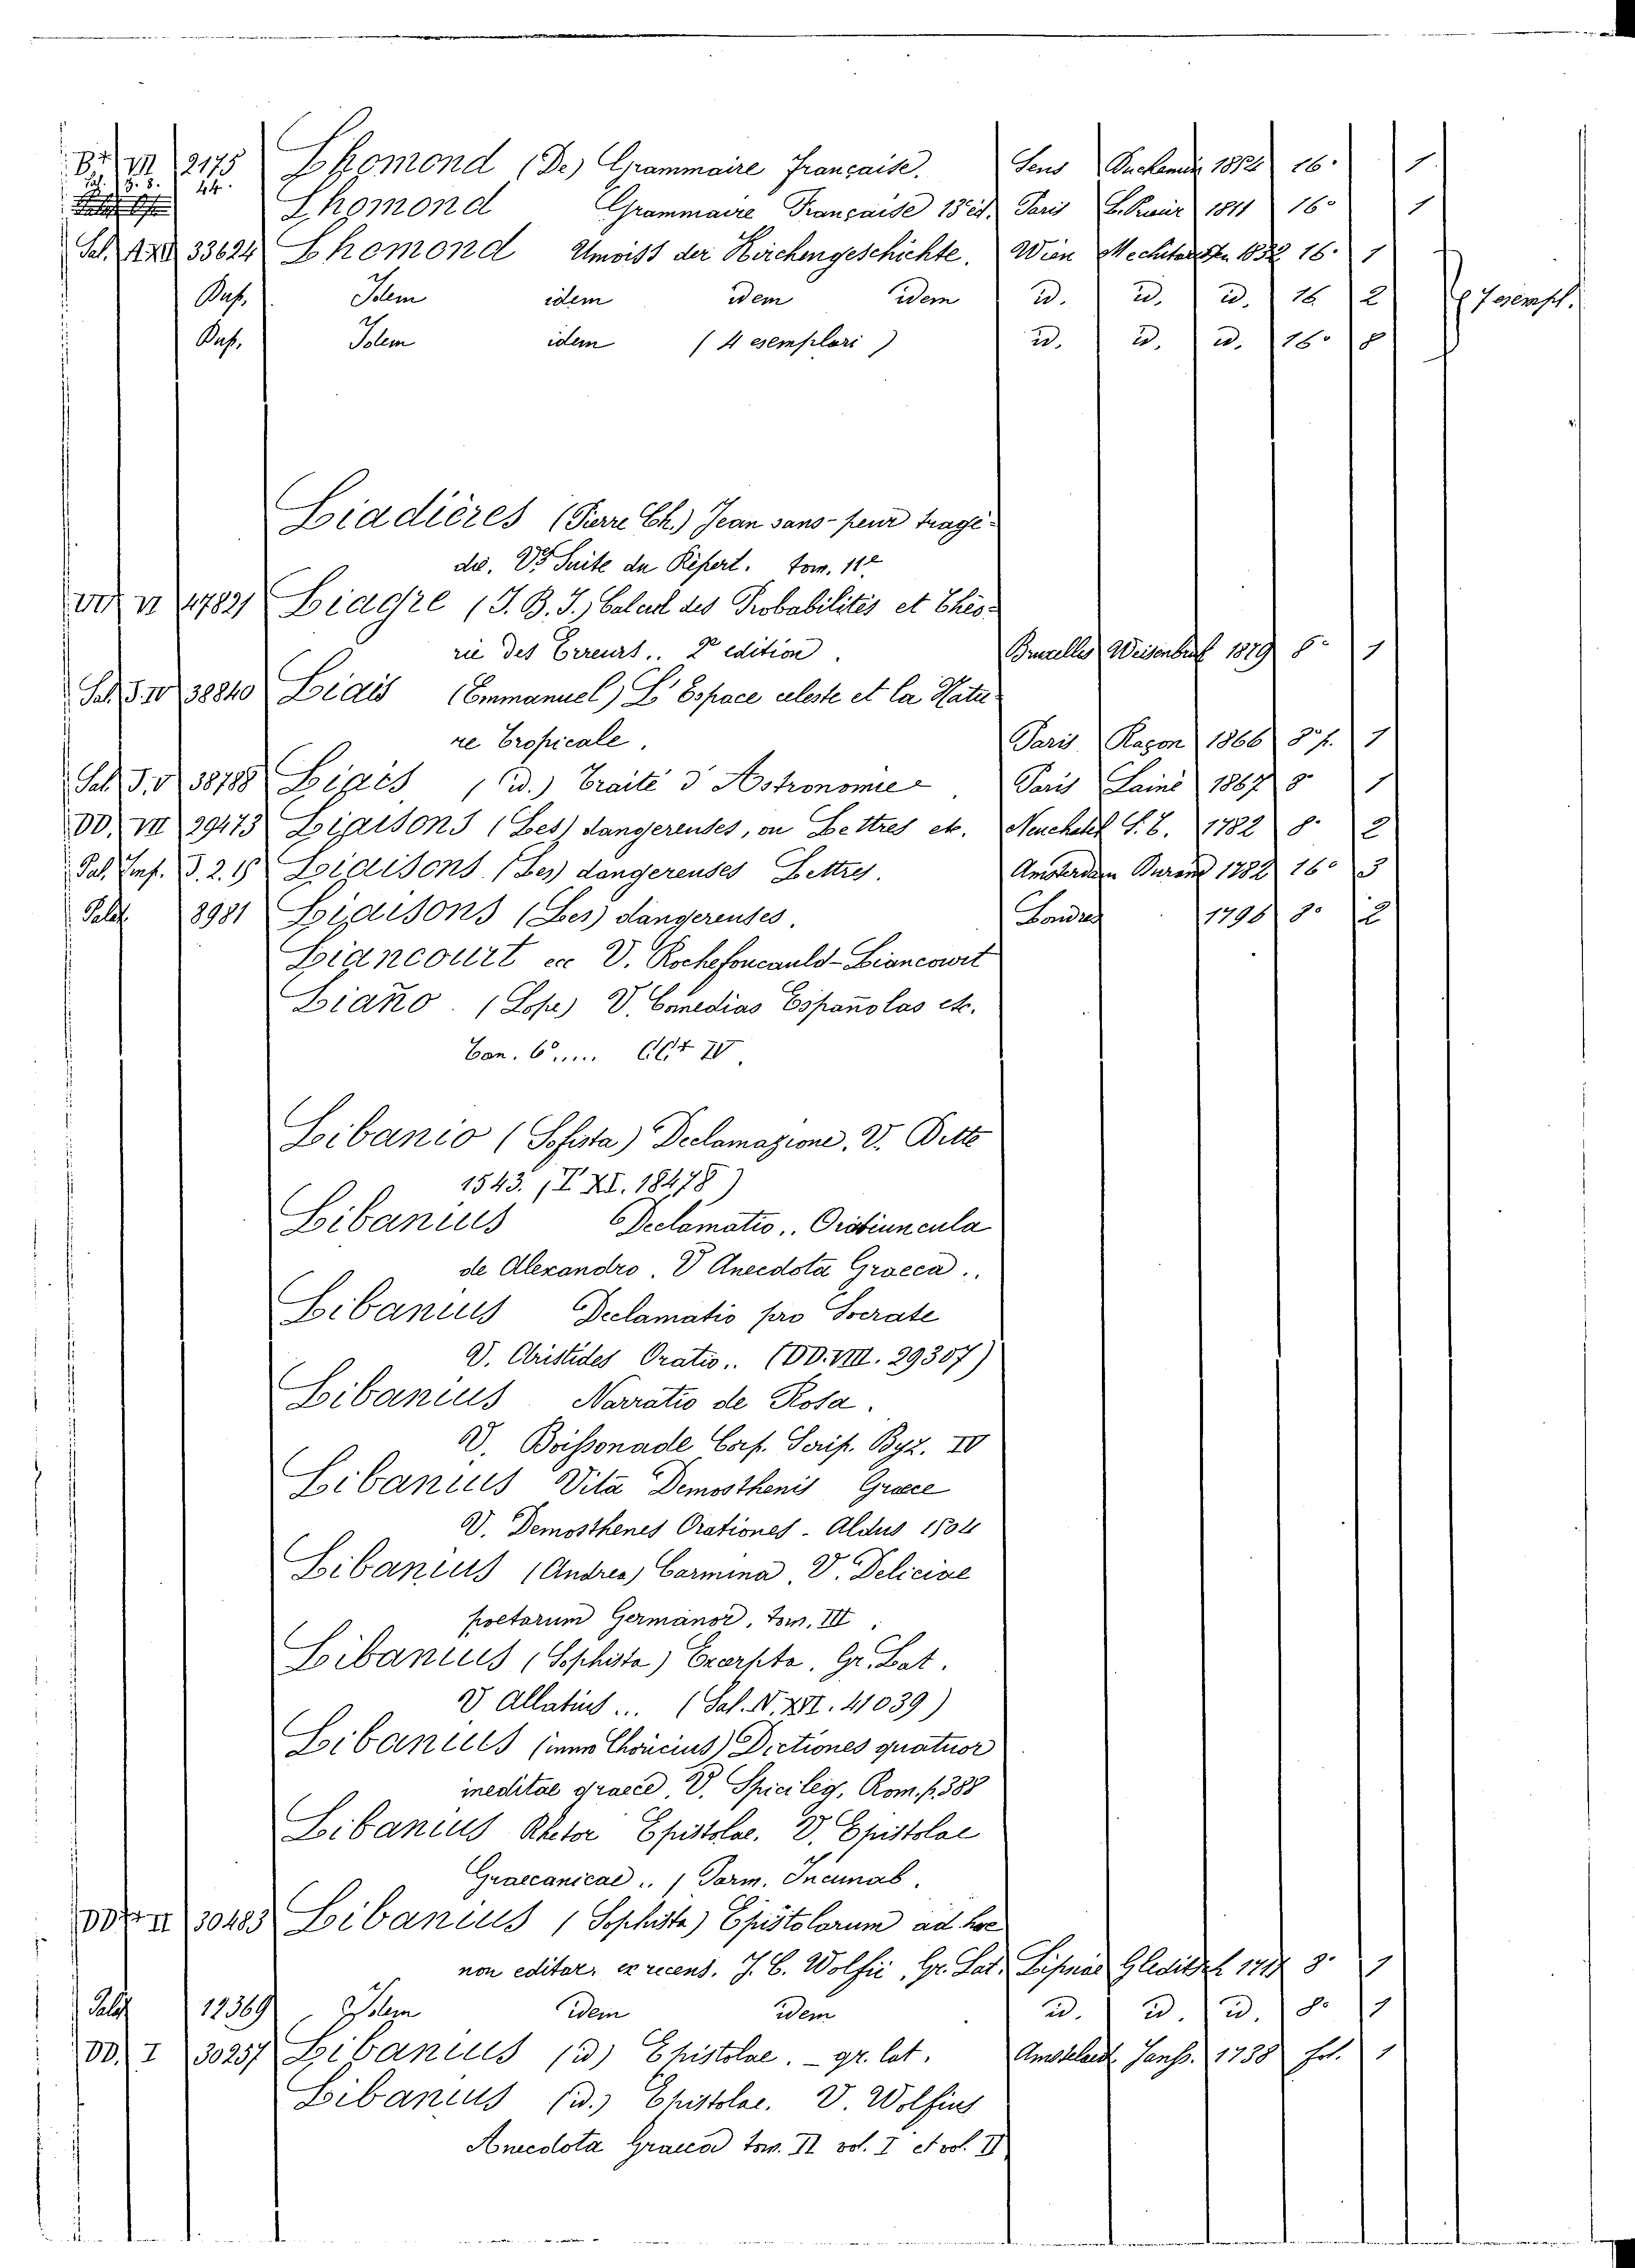 B. VII 2175 Lhomond (De) Grammaire Française. Sens 16° 1
Pal. 3. 8. 44. Lhomond Grammaire Française 13 ed. Paris 1811 16° 1
Sal. 33624 Lhomond Umriss der Kirchengeschichte. Wien 1832 16° 1
Dup. Idem idem idem idem id. id. id. 16 2
Dup. Idem idem (4 esemplari) id. id. id. 16° 8
Liadières (Pierre Ch.) Jean sans-peur tragé-
die. V. Suite du Répert. tom. 11°
VI 4782 Liagre (J. B. J.) Calcul des Probabilités et Théo-
rie des Erreurs.. 2e edition. Bruxelles 1879 8° 1
Sal. J. IV 38840 Liais (Emmanuel) L'Espace celeste et la Natu-
re tropicale. Paris Raçon 1866 8° f. 1
Sal. J. V 38788 Liais (id.) Traité d'Astronomie. Paris Lainé 1867 8° 1
DD. VII 29473 Liaisons (Les) dangereuses, ou Lettres etc. Neuchatel S. T. 1782 8° 2
Pal. Imp. 3. 2. 15 Liaisons (Les) dangereuses Lettres. Amsterdam Durand 1782 16° 3
Palat. 8981 Liaisons (Les) dangereuses. Londres 1796 8° 2
Liancourt ecc V. Rochefoucauld-Liancourt
Liaño. (Lope) V. Comedias Españolas etc.
IV
Libanio (Sofista) Declamazione. V. Ditte
1543. (T. XI. 18478)
Libanius Declamatio.. Oratiuncula
de Alexandro. V Anecdota Graeca..
Libanius Declamatio pro Socrate
V. Aristides Oratio.. (DD. VIII. 29307)
Libanius Narratio de Rosa.
V. Boissonade Corp. Scrip. Byz. IV
Libanius Vita Demosthenis Graece
V. Demosthenes Orationes - Aldus 1504
Libanius (Andrea) Carmina. V. Deliciae
poetarum Germanor. tom. III.
Libanius (Sophista) Excerpta. Gr. Lat.
V Allatius... (Sal. N. XVI. 41039)
Libanius (immo Choricius) Dictiones quatuor
ineditae graece. V. Spicileg. Rom. p. 388
Libanius Rhetor Epistolae. V. Epistolae
Graecanicae.. (Parm. Incunab.
DD. II 30483 Libanius (Sophista) Epistolarum ad hoc
non editar. ex recens. J. C. Wolfii, Gr. Lat. Lipsiae Gleditsch 1711 8° 1
Palat 12369 Idem idem idem id. id. id. 8° 1
DD. I 30257 Libanius (id) Epistolae. - gr. lat. Amstelaed. Janss. 1738 fol. 1
Libanius (id.) Epistolae. V. Wolfius
Anecdota Graeca tom. II vol. I et vol. II